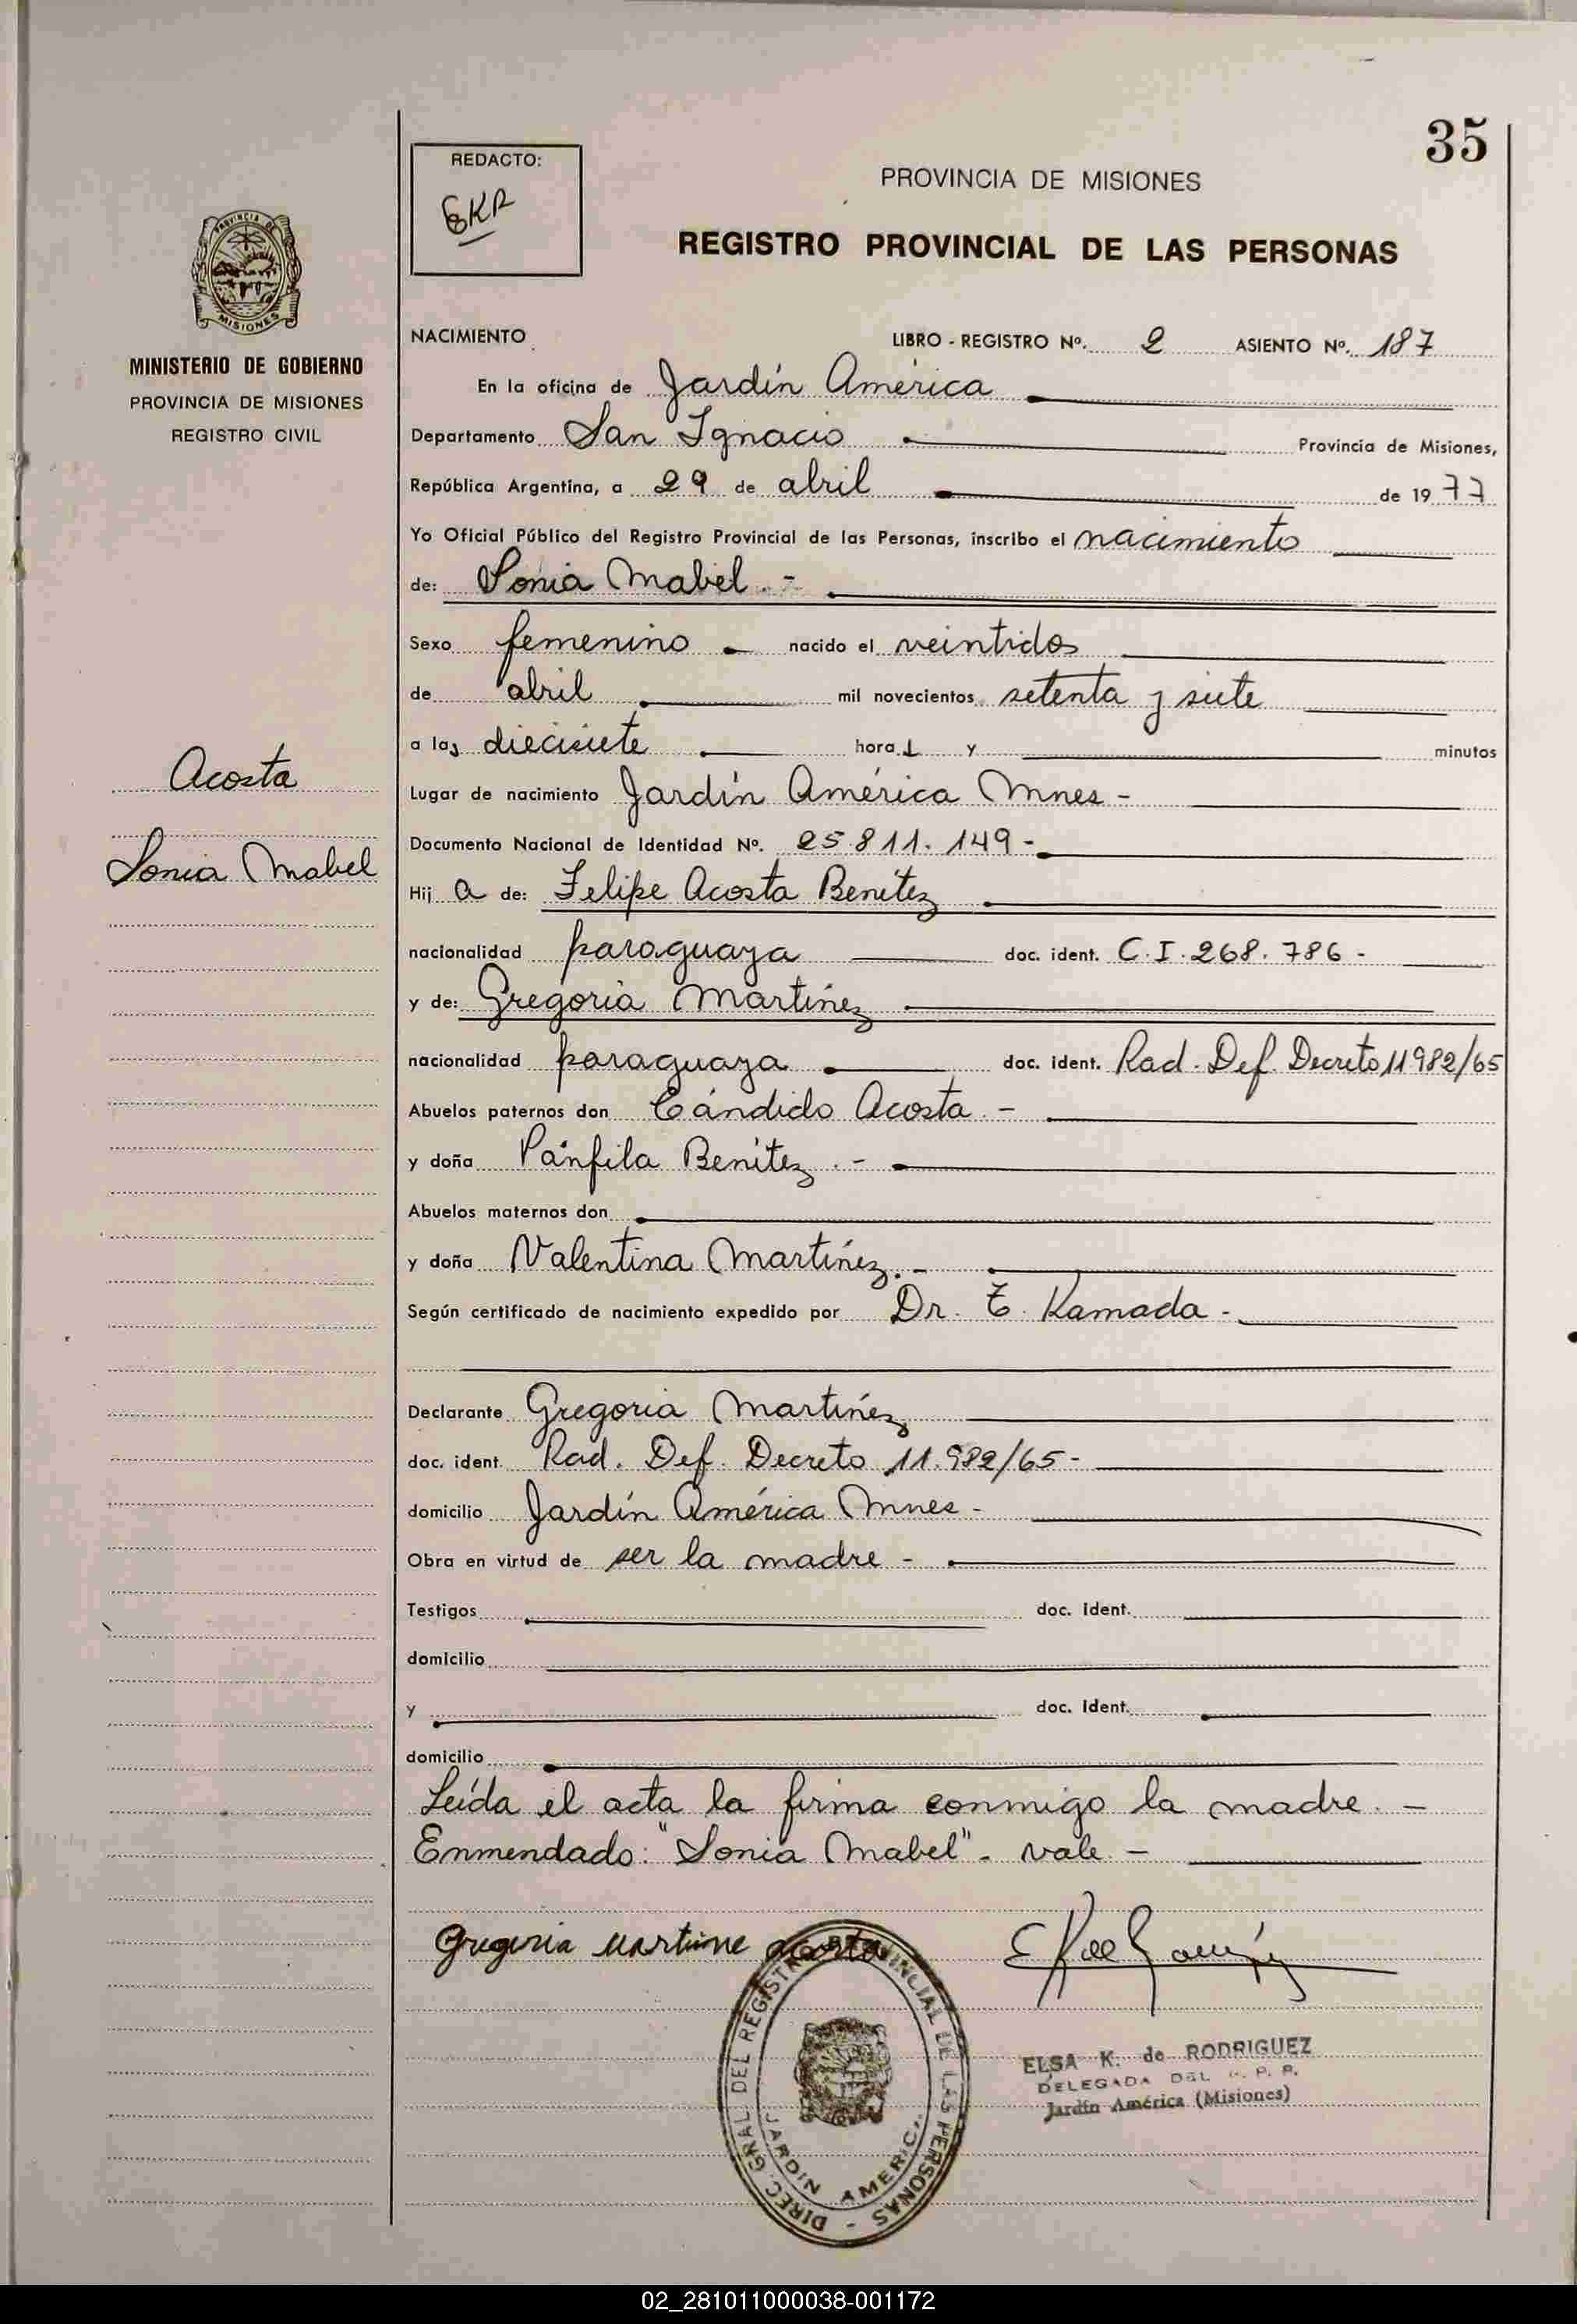 35
REDACTO:
EKR
PROVINCIA DE MISIONES
REGISTRO PROVINCIAL DE LAS PERSONAS
PROVINCIA DE
MISIONES
MINISTERIO DE GOBIERNO
PROVINCIA DE MISIONES
REGISTRO CIVIL
Acosta
Sonia Mabel
NACIMIENTO LIBRO - REGISTRO Nº. 2 ASIENTO Nº. 187
En la oficina de Jardín América
Departamento San Ignacio Provincia de Misiones,
República Argentina, a 29 de abril de 1977
Yo Oficial Público del Registro Provincial de las Personas, inscribo el nacimiento
de: Sonia Mabel.-
Sexo femenino nacido el veintidos
de abril mil novecientos setenta y siete
a las diecisiete hora y minutos
Lugar de nacimiento Jardín América Mnes-
Documento Nacional de Identidad Nº. 25.811.149-
Hij a de: Felipe Acosta Benítez
nacionalidad paraguaya doc. ident. C.I. 268.786-
y de: Gregoria Martínez
nacionalidad paraguaya doc. ident. Rad. Def. Decreto 11982/65
Abuelos paternos don Cándido Acosta.-
y doña Pánfila Benítez.-
Abuelos maternos don
y doña Valentina Martínez.-
Según certificado de nacimiento expedido por Dr. T. Kamada-
Declarante Gregoria Martínez
doc. ident. Rad. Def. Decreto 11.982/65-
domicilio Jardín América Mnes-
Obra en virtud de ser la madre-
Testigos doc. ident.
domicilio
y doc. ident.
domicilio
Leída el acta la firma conmigo la madre.-
Enmendado: "Sonia Mabel"- vale.-
Gregoria Martine acosta
DIREC. GRAL. DEL REGISTRO PROVINCIAL DE LAS PERSONAS -
JARDIN AMERICA
ELSA K. de RODRIGUEZ
DELEGADA DEL R. P. P.
Jardín América (Misiones)
02_281011000038-001172